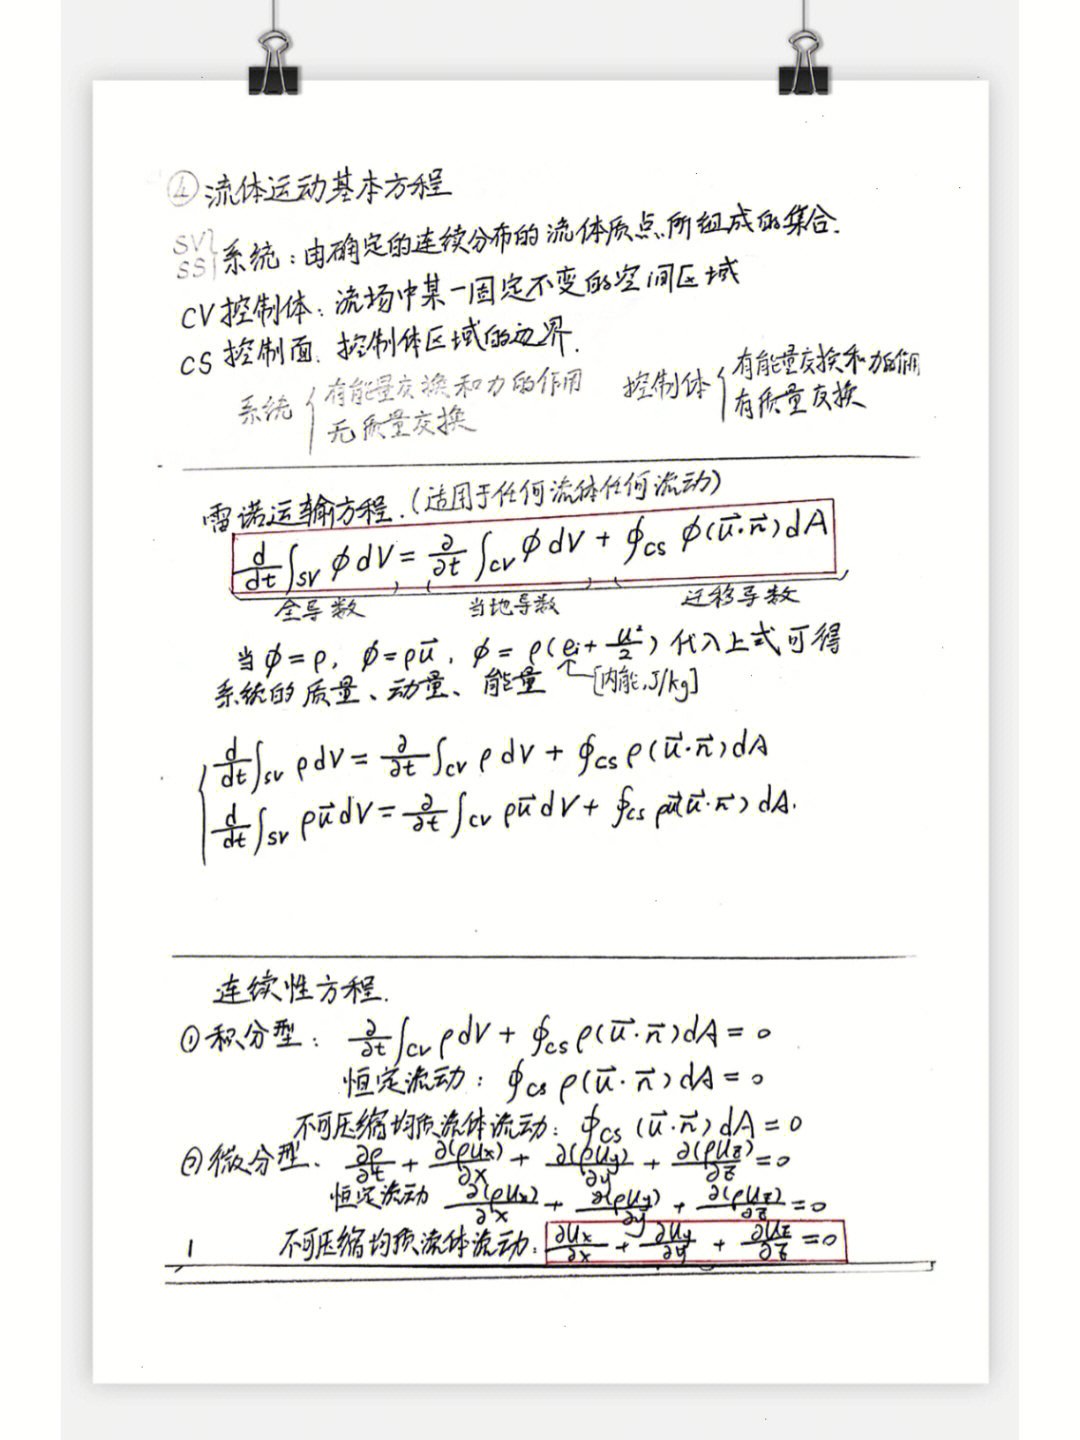 ④ 流体运动基本方程
SV
SS
系统：由确定的连续分布的流体质点所组成的集合.
CV 控制体：流场中某一固定不变的空间区域
CS 控制面. 控制体区域的边界.
系统 { 有能量交换和力的作用
无质量交换
控制体 { 有能量交换和力的作用
有质量交换
雷诺运输方程.（适用于任何流体任何流动）
d/dt ∫SV ϕ dV = ∂/∂t ∫CV ϕ dV + ∮CS ϕ(u⃗·n⃗)dA
全导数 当地导数 迁移导数
当 ϕ=ρ, ϕ=ρu⃗, ϕ=ρ(ei+u²/2) 代入上式可得
系统的质量、动量、能量 [内能,J/kg]
d/dt ∫SV ρ dV = ∂/∂t ∫CV ρ dV + ∮CS ρ(u⃗·n⃗)dA
d/dt ∫SV ρu⃗ dV = ∂/∂t ∫CV ρu⃗ dV + ∮CS ρu⃗(u⃗·n⃗)dA.
连续性方程.
① 积分型： ∂/∂t ∫CV ρ dV + ∮CS ρ(u⃗·n⃗)dA = 0
恒定流动：∮CS ρ(u⃗·n⃗)dA = 0
不可压缩均质流体流动：∮CS (u⃗·n⃗)dA = 0
② 微分型. ∂ρ/∂t + ∂(ρux)/∂x + ∂(ρuy)/∂y + ∂(ρuz)/∂z = 0
恒定流动 ∂(ρux)/∂x + ∂(ρuy)/∂y + ∂(ρuz)/∂z = 0
不可压缩均质流体流动：∂ux/∂x + ∂uy/∂y + ∂uz/∂z = 0
1